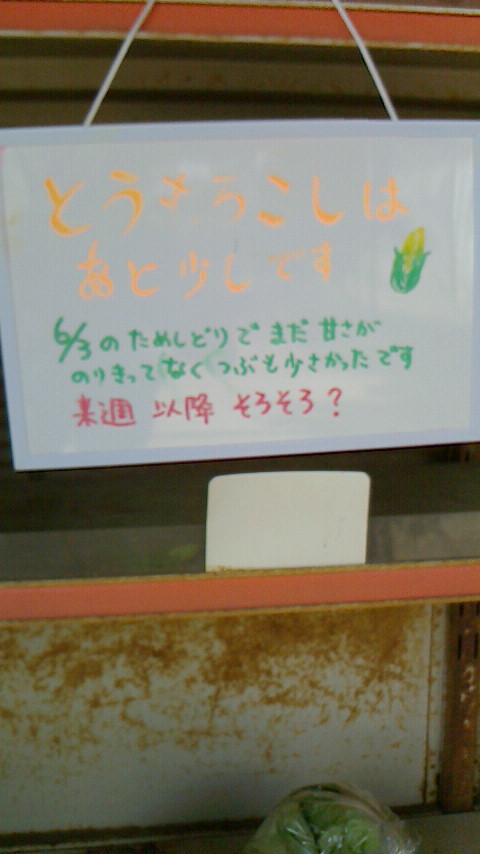 とうもろこしは
あと少しです
6/3のためしどりでまだ甘さが
のりきってなくつぶも少さかったです
来週 以降 そろそろ？